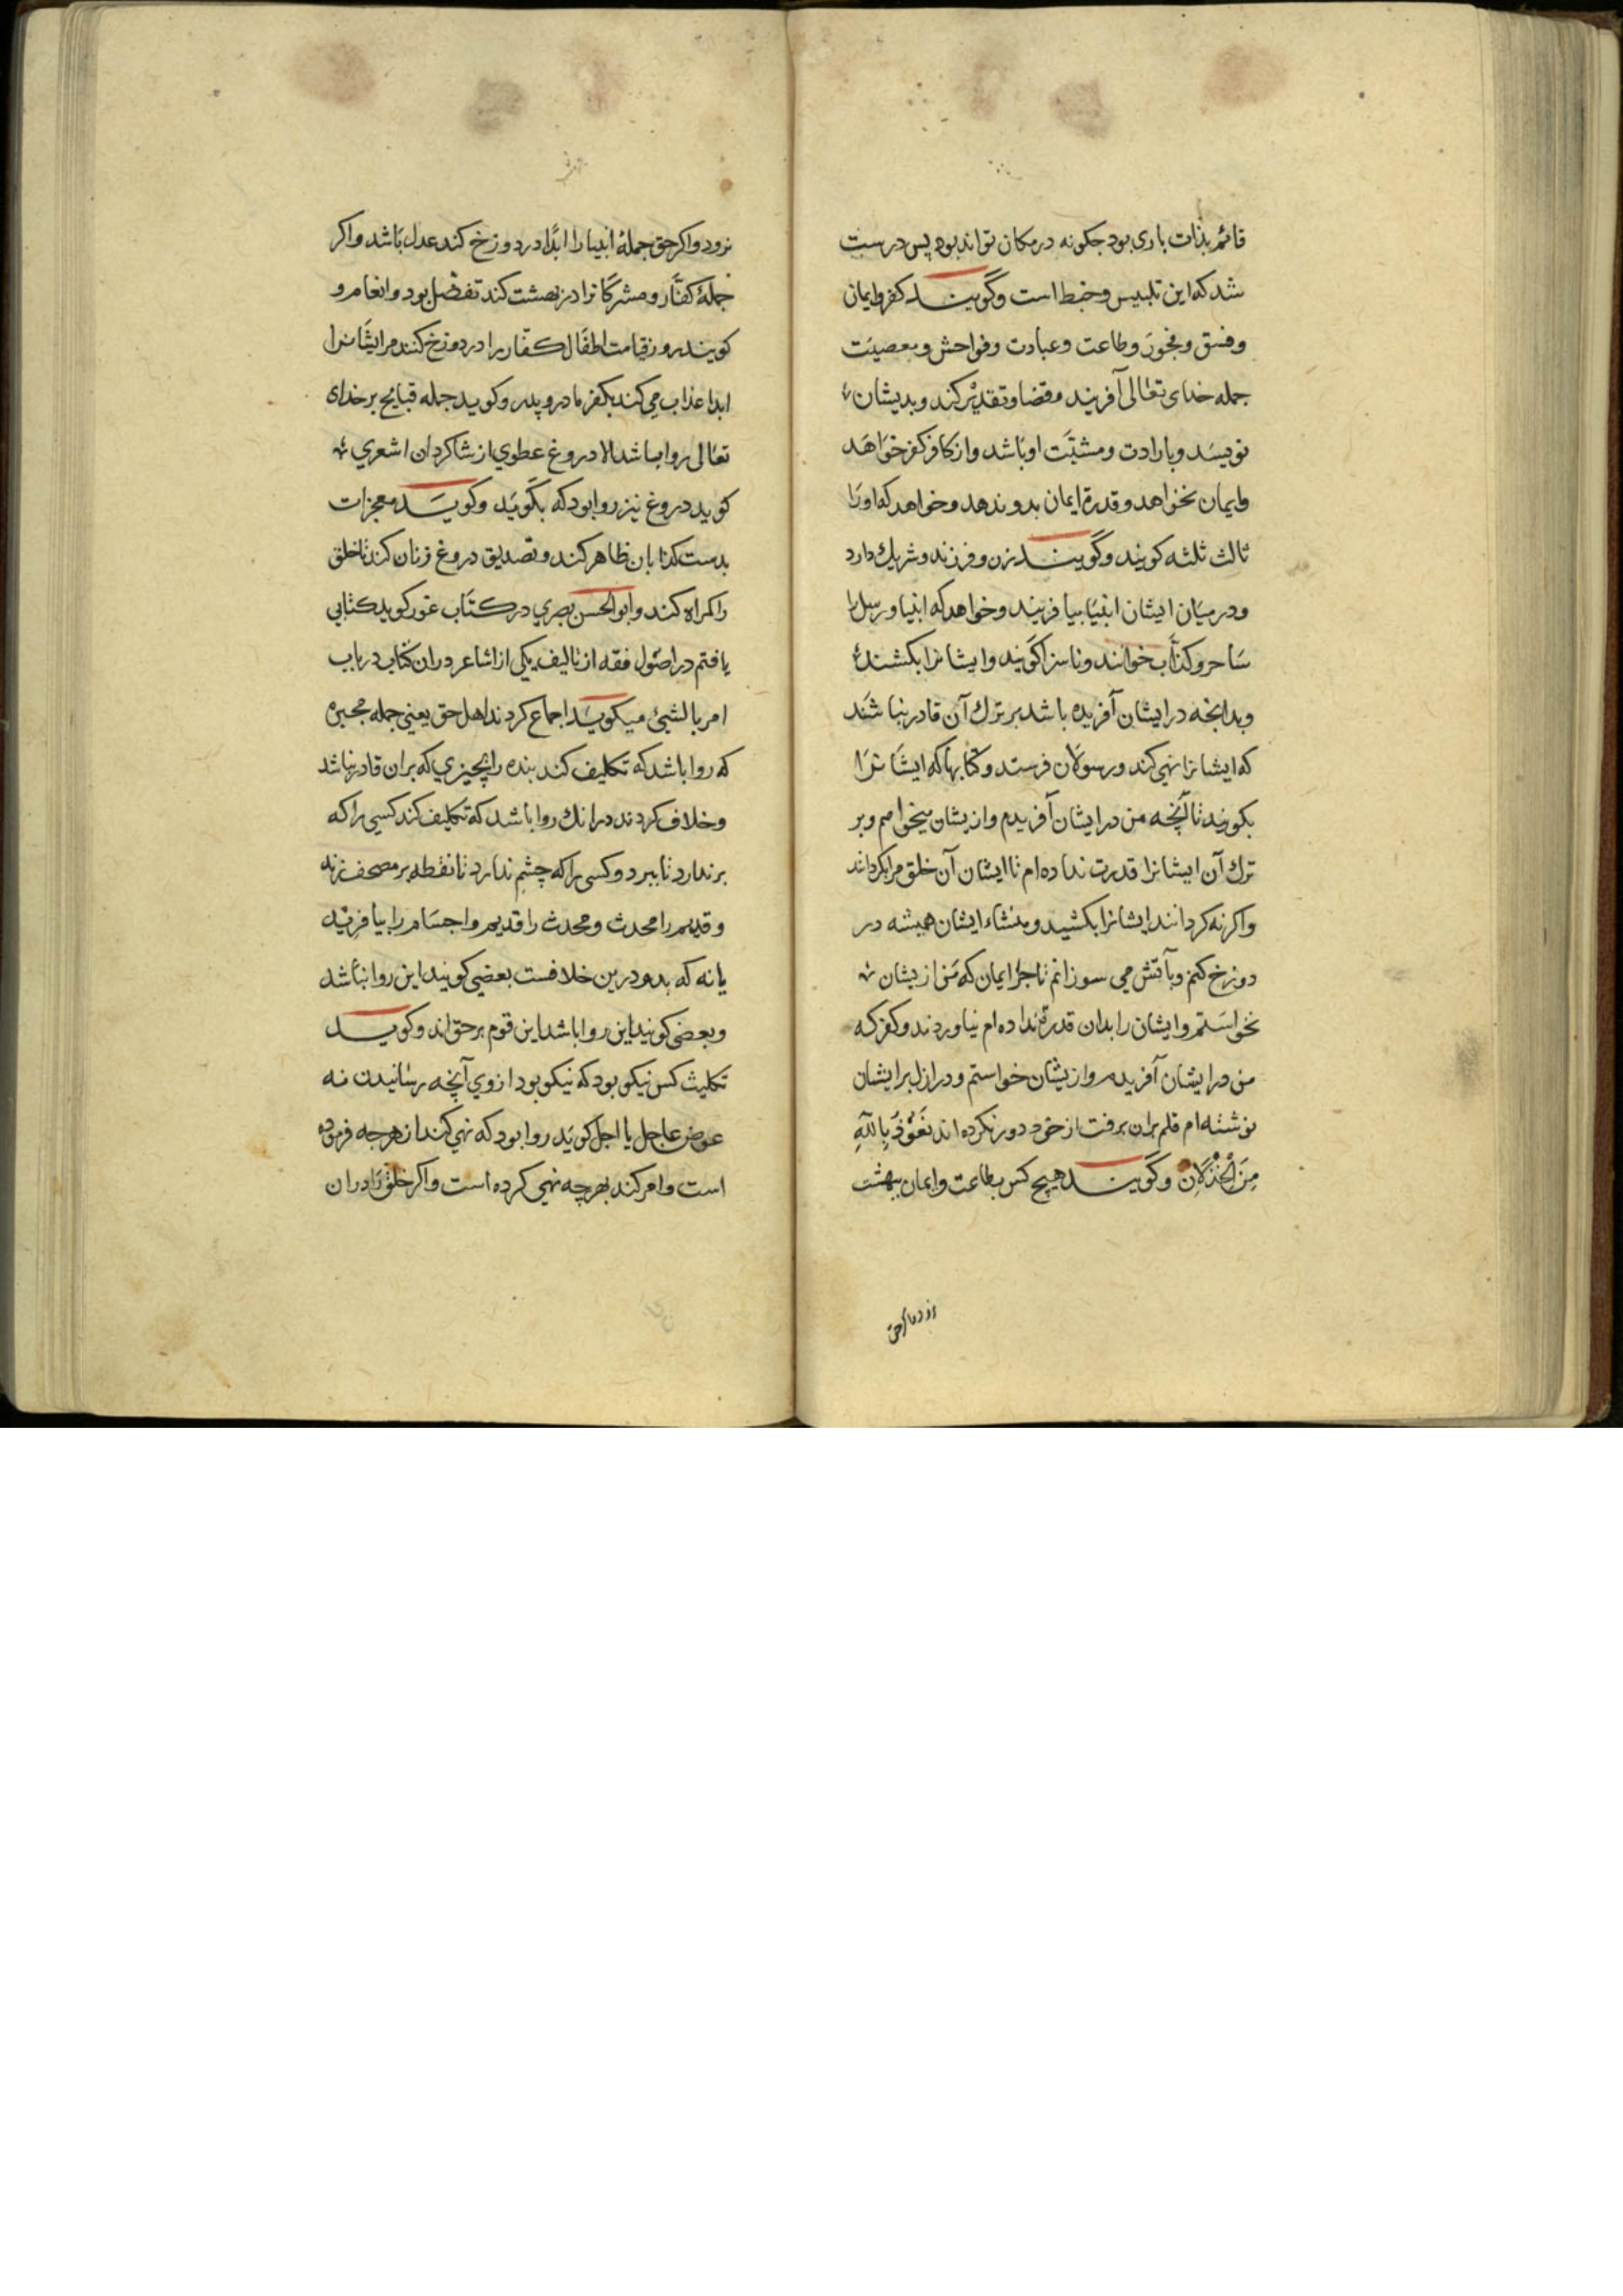 قائم بذات باری بود چکونه در مکان تواند بود پس درست
شد که این تلبیس و خبط است و گویند کفر و ایمان
و فسق و فجور و طاعت و عبادت و فواحش و معصیت
جمله خدای تعالی آفریند و قضا و تقدیر کند و بدیشان
نویسد و بارادت و مشیّت او باشد و از کافر کفر خواهد
و ایمان نخواهد و قدرة ایمان بدو ندهد و خواهد که او را
ثالث ثلثه کویند و گویند زن و فرزند و شریك دارد
و در میان ایشان انبیا بیافریند و خواهد که انبیا و رسل را
ساحر و کذّاب خوانند و ناسزا کویند و ایشانرا بکشند
و بدانچه در ایشان آفریده باشد بر ترك آن قادر نباشند
که ایشانرا نهی کند و رسولان فرستد و کتابها که ایشانرا
بکویند تا آنچه من در ایشان آفریدم و ازیشان میخواهم و بر
ترك آن ایشانرا قدرت نداده ام تا ایشان آن خلق مرا بکردانند
و اکر نه کردانند ایشانرا بکشید و منشاء ایشان همیشه در
دوزخ کنم و بآتش می سوزانم تا چرا ایمان که من ازیشان
نخواستم و ایشان را بدان قدرة نداده ام نیاوردند و کفر که
من در ایشان آفریدم و ازیشان خواستم و در ازل بر ایشان
نوشته ام قلم بران برفت از خود دور نکرده اند نَعُوْذُ بِاللهِ
مِنَ الْخِذْلَانِ و گویند هیچ کس بطاعت و ایمان ببهشت
نرود و اکر حق جملهٔ انبیا را ابدًا در دوزخ کند عدل باشد و اکر
جملهٔ کفّار و مشرکانرا در بهشت کند تفضّل بود و انعام و
کویند روز قیامت اطفال کفّار را در دوزخ کنند مر ایشانرا
ابدا عذاب می کند بکفر مادر و پدر و کوید جمله قبایح بر خدای
تعالی روا باشد الا دروغ عطوی از شاکردان اشعری
کوید دروغ نیز روا بود که بگوید و کویند معجزات
بدست کذابان ظاهر کند و تصدیق دروغ زنان کند تا خلق
را کمراه کند و ابو الحسن بصری در کتاب غرر کوید کتابی
یافتم در اصول فقه از تالیف یکی از اشاعر دران کتاب در باب
امر بالشیٔ میکوید اجماع کردند اهل حق یعنی جمله مجبره
که روا باشد که تکلیف کند بنده را بچیزی که بران قادر نباشد
و خلاف کردند درانك روا باشد که تکلیف کند کسی را که
بر ندارد تا ببرد و کسی را که چشم ندارد تا نقطه بر مصحف زند
و قدیم را محدث و محدث را قدیم و اجسام را بیافریند
یا نه که درین خلافست بعضی کویند این روا نباشد
و بعضی کویند این روا باشد این قوم بر حق اند و کویند
کس نیکو بود که نیکو بود از وی آنچه رسانیدن نه
عوض عاجل یا اجل کویند روا بود که نهی کند از هرچه فرموده
است و امر کند بهرچه نهی کرده است و اکر خلق را دران